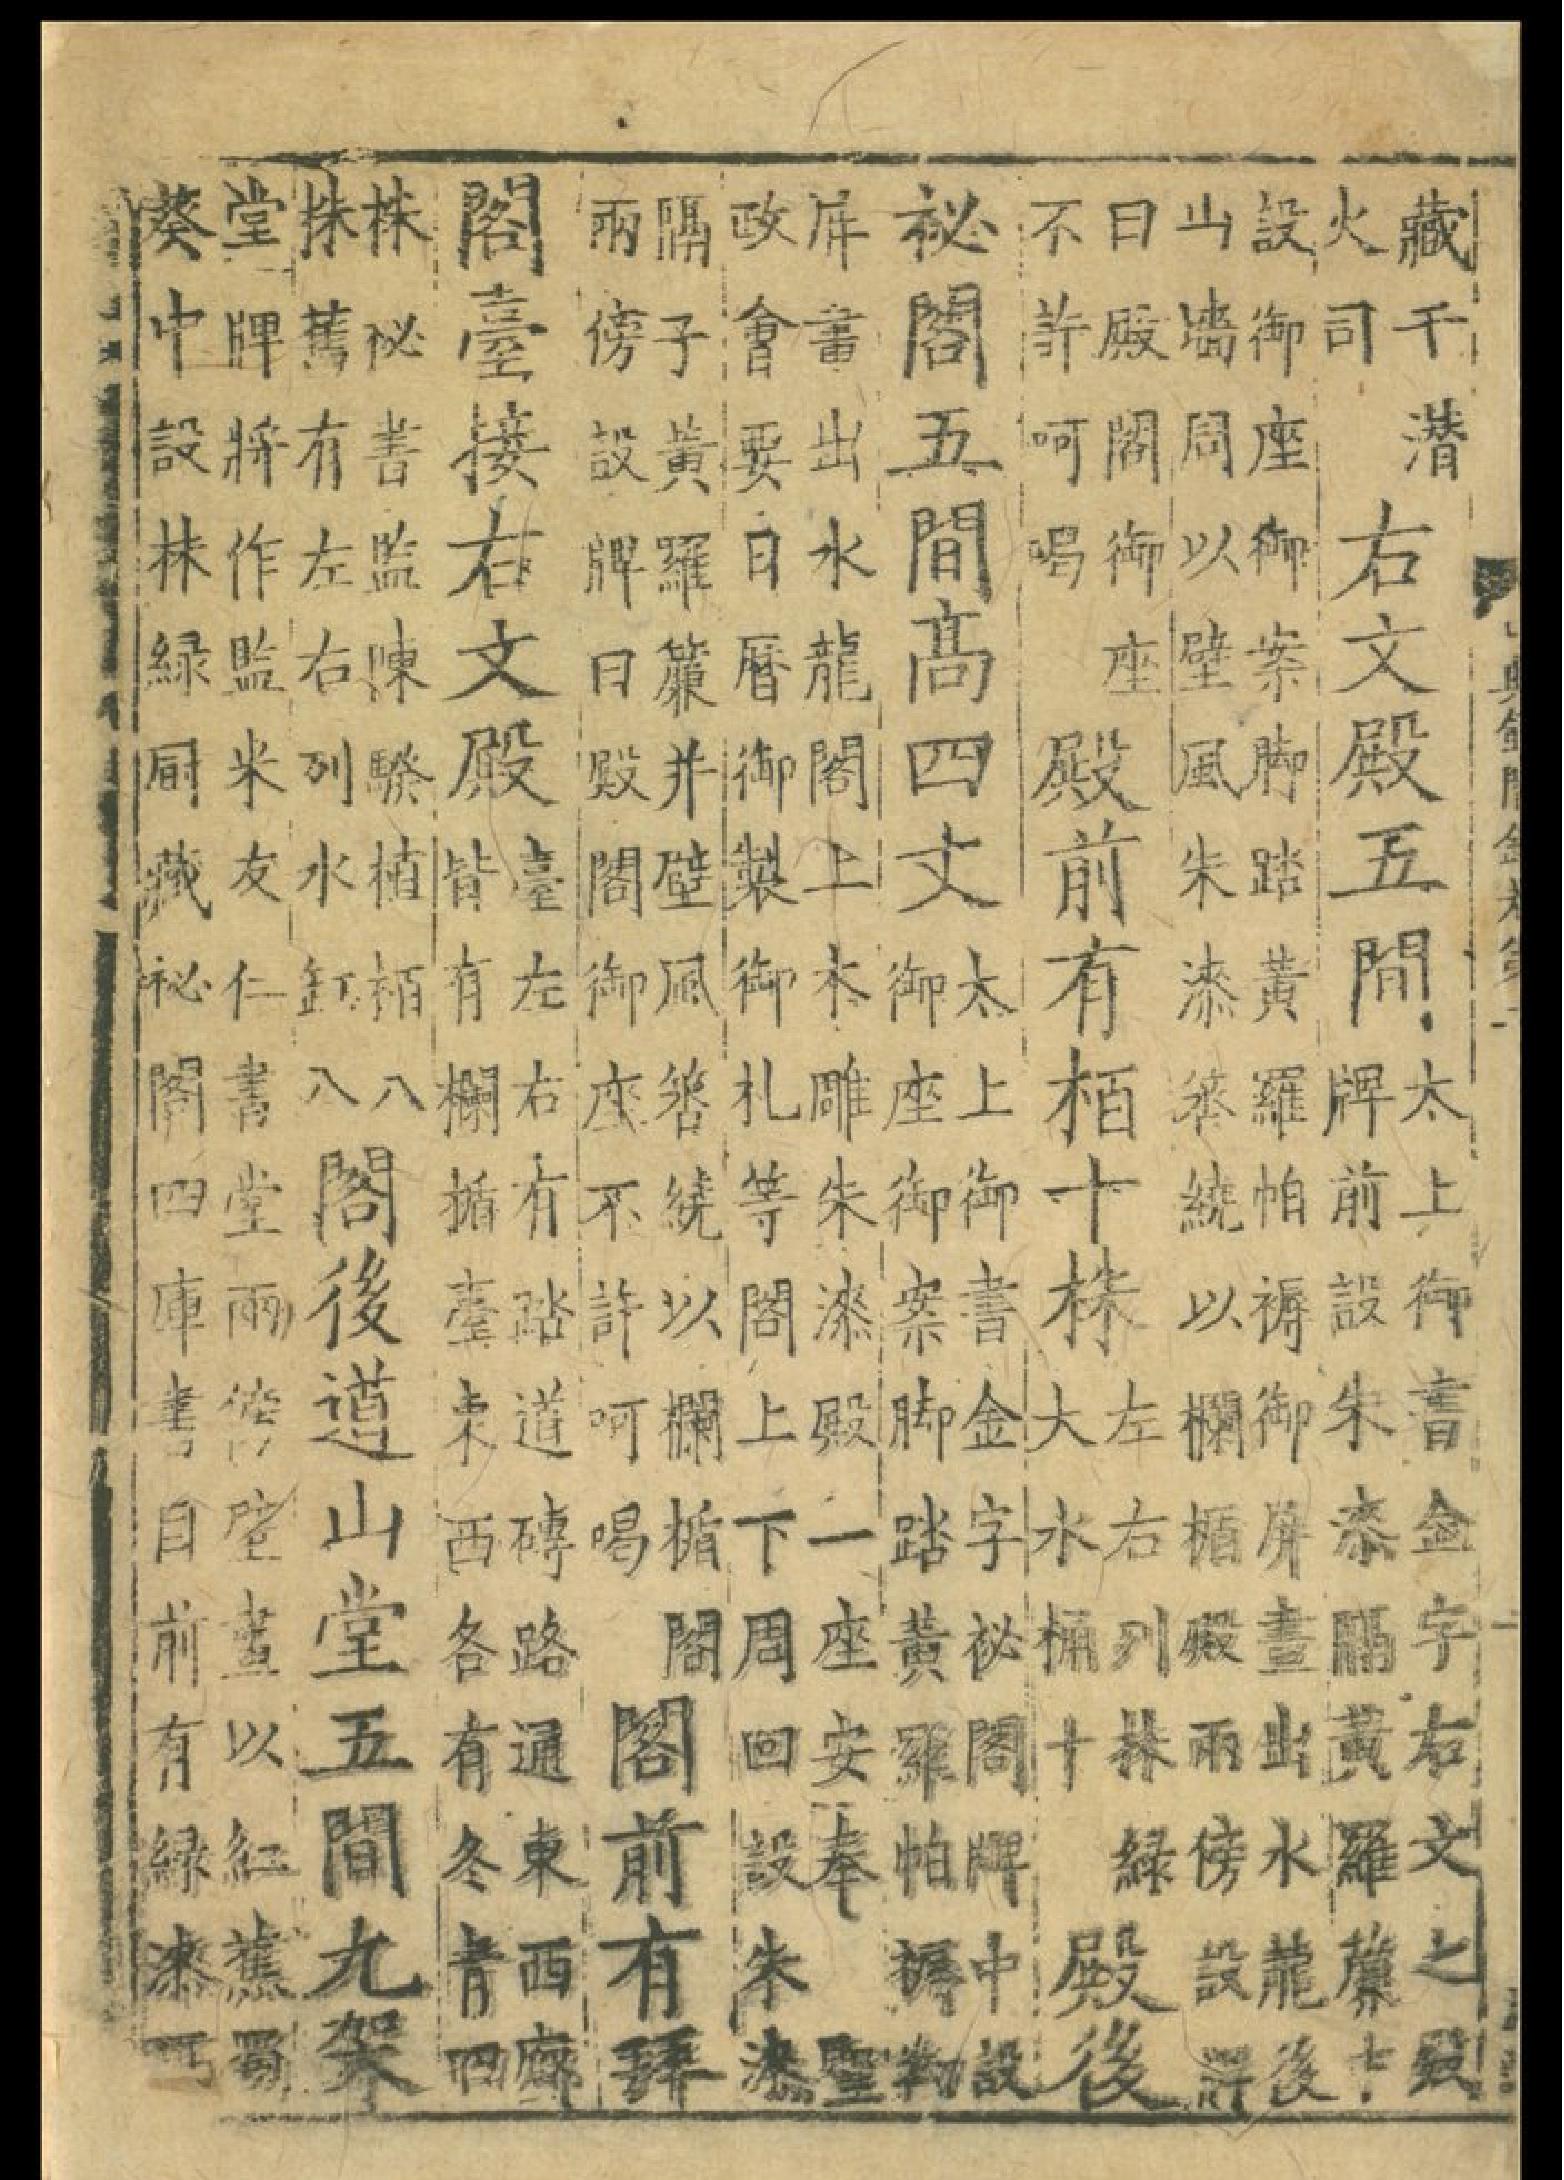 藏干潜
火司
右文殿五間
太上御書金字右文之殿
牌前設朱漆隔黃羅簾十
設御座御案脚踏黃羅帕褥御屏畫出水龍後
山墻周以壁風朱漆繞以欄楯殿兩傍設牌
曰殿閣御座
不許呵喝
殿前有栢十株
左右列株緑
大水桶十
殿後
祕閣五間高四丈
太上御書金字祕閣牌中設
御座御案脚踏黃羅帕褥御
屏畫出水龍閣上木雕朱漆殿一座安奉聖
政會要日曆御製御札等閣上下周回設朱漆
隔子黃羅簾并壁風簷繞以欄楯閣
兩傍設牌曰殿閣御座不許呵喝
閣前有拜
閣臺接右文殿
臺左右有踏道磚路通東西廊
皆有欄楯臺東西各有冬青四
株祕書監陳騤植栢八
株舊有左右列水缸八
閣後道山堂五間九架
堂牌將作監米友仁書堂兩傍壁畫以紅蕉蜀
葵中設抹緑厨藏祕閣四庫書目前有緑漆